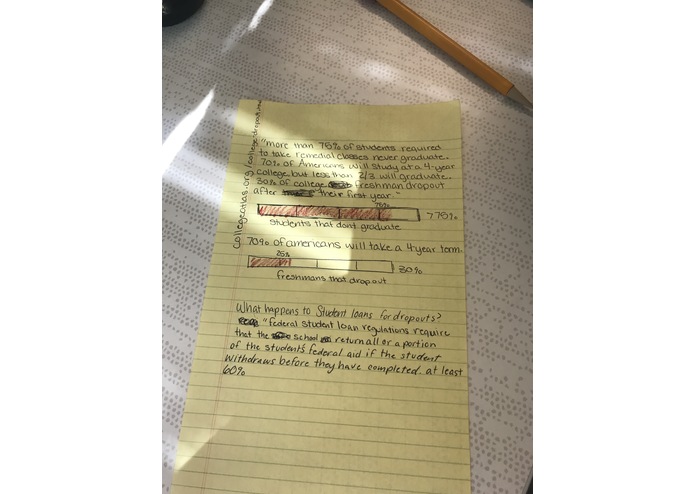 collegeatlas.org/college-dropout.html
"more than 75% of students required
to take remedial classes never graduate.
70% of Americans will study at a 4-year
college but less than 2/3 will graduate.
30% of college freshman dropout
after their first year."
75%
775%
students that dont graduate
70% of americans will take a 4year term.
25%
30%
freshmans that dropout
What happens to Student loans for dropouts?
"federal student loan regulations require
that the school return all or a portion
of the student's federal aid if the student
withdraws before they have completed. at least
60%